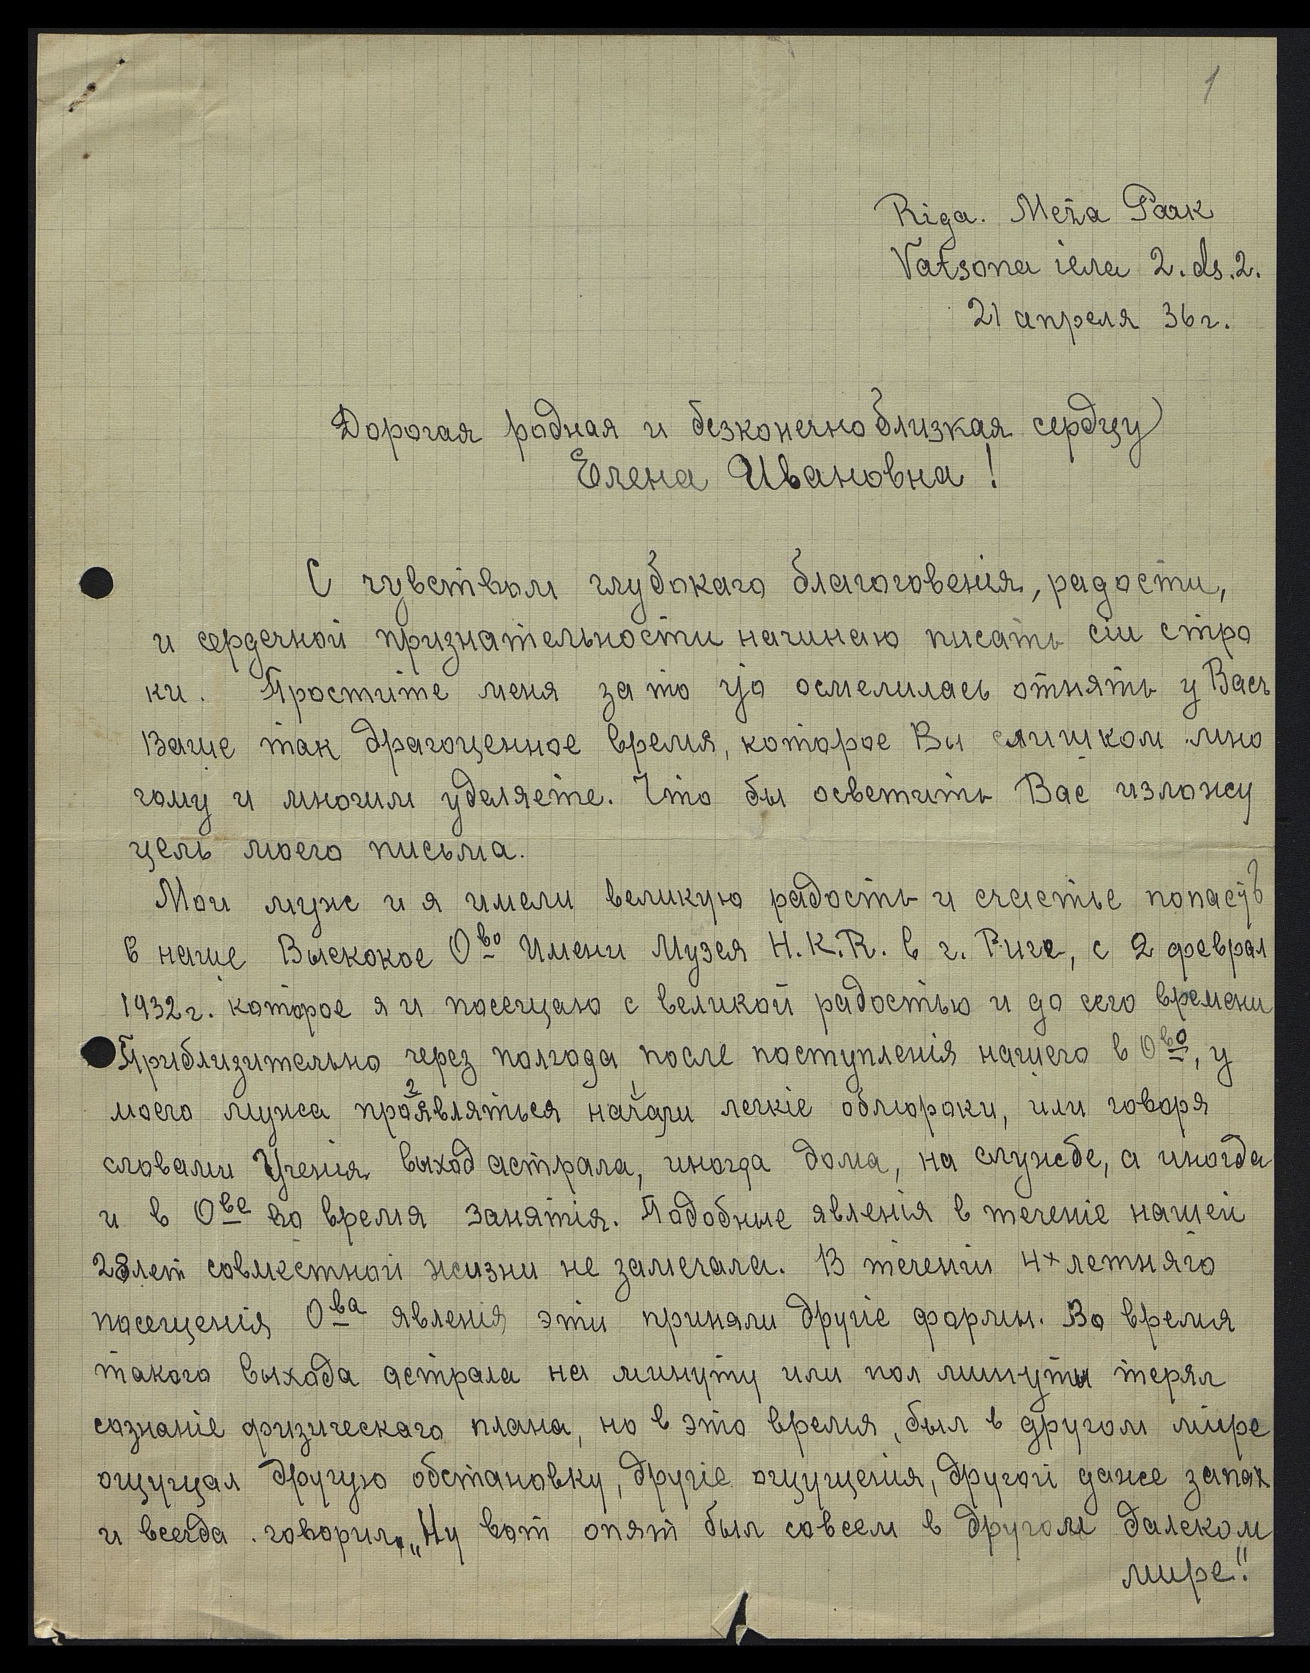 1
Riga. Meža Park
Vatsona iela 2. ds. 2.
21 апреля 36 г.
Дорогая родная и безконечно близкая сердцу
Елена Ивановна!
С чувством глубокаго благоговения, радости,
и сердечной признательности начинаю писать сии стро
ки. Простите меня за то что осмелилась отнять у Васъ
Ваше так драгоценное время, которое Вы слишком мно
гому и многим уделяете. Что бы осветить Вас изложу
цель моего письма.
Мои муж и я имели великую радость и счастье попасть
в наше Высокое О-во Имени Музея Н.К.R. в г. Риге, с 2 феврал
1932 г. которое я и посещаю с великой радостью и до сего времени
Приблизительно через полгода после поступленія нашего в О-во, у
моего мужа проявляться начали легкіе обмороки, или говоря
словами Ученія выход астрала, иногда дома, на службе, а иногда
и в О-ве во время занятія. Подобные явленія в теченіе нашей
28 лет совместной жизни не замечала. В теченіи 4х летняго
посещенія О-ва явленія эти приняли другіе формы. Во время
такого выхода астрала на минуту или пол минуты терял
сознаніе физическаго плана, но в это время, был в другом міре
ощущал другую обстановку, другіе ощущенія, другой даже запах
и всегда говорил, „Ну вот опят был совсем в другом далеком
мире."